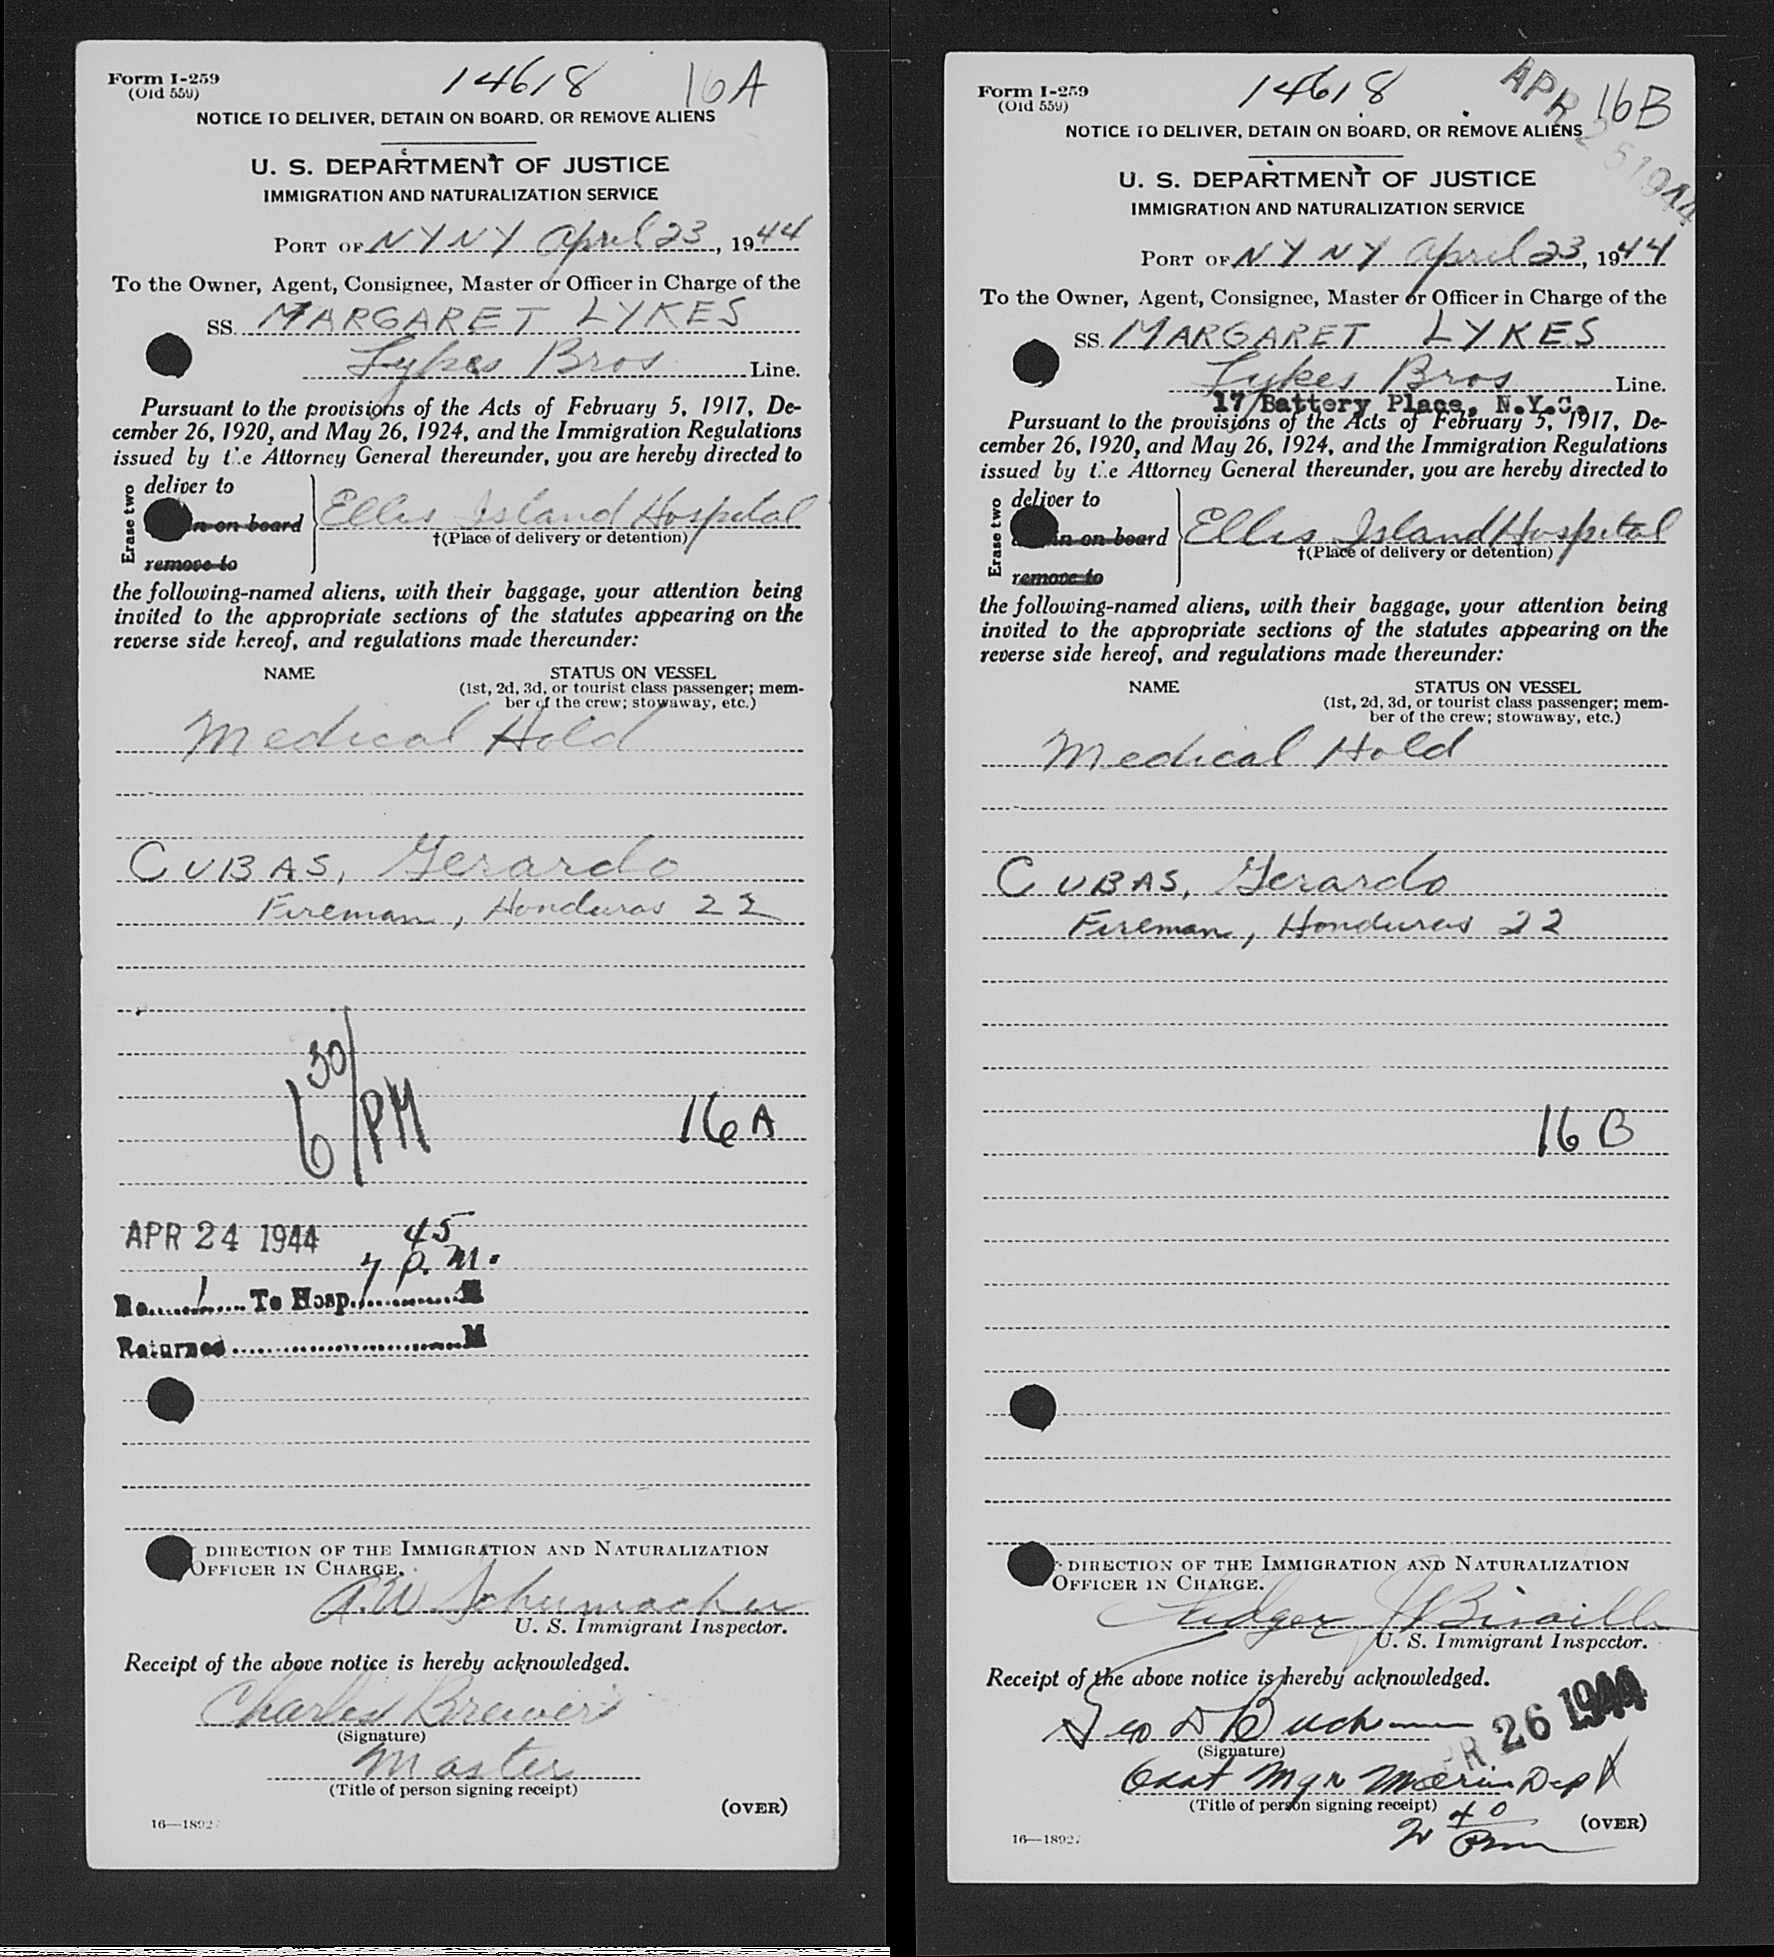 Form I-259
(Old 559)
14618
16A
NOTICE TO DELIVER, DETAIN ON BOARD, OR REMOVE ALIENS
U. S. DEPARTMENT OF JUSTICE
IMMIGRATION AND NATURALIZATION SERVICE
PORT OF NY NY April 23, 1944
To the Owner, Agent, Consignee, Master or Officer in Charge of the
SS. MARGARET LYKES
Lykes Bros Line.
Pursuant to the provisions of the Acts of February 5, 1917, De-
cember 26, 1920, and May 26, 1924, and the Immigration Regulations
issued by t.e Attorney General thereunder, you are hereby directed to
Erase two
deliver to
n on board
remove to
Ellis Island Hospital
†(Place of delivery or detention)
the following-named aliens, with their baggage, your attention being
invited to the appropriate sections of the statutes appearing on the
reverse side hereof, and regulations made thereunder:
NAME
STATUS ON VESSEL
(1st, 2d, 3d, or tourist class passenger; mem-
ber of the crew; stowaway, etc.)
Medical Hold
CUBAS, Gerardo
Fireman, Honduras 22
6 30/PM
16A
APR 24 1944
7 45 P.M.
No. 1 To Hosp. M
Returned M
DIRECTION OF THE IMMIGRATION AND NATURALIZATION
OFFICER IN CHARGE.
A.W Schumacher
U. S. Immigrant Inspector.
Receipt of the above notice is hereby acknowledged.
Charles Brewer
(Signature)
Master
(Title of person signing receipt)
(OVER)
16—18927
Form I-259
(Old 559)
14618
APR 25 1944
16B
NOTICE TO DELIVER, DETAIN ON BOARD, OR REMOVE ALIENS
U. S. DEPARTMENT OF JUSTICE
IMMIGRATION AND NATURALIZATION SERVICE
PORT OF NY NY April 23, 1944
To the Owner, Agent, Consignee, Master or Officer in Charge of the
SS. MARGARET LYKES
Lykes Bros Line.
17 Battery Place, N.Y.C.
Pursuant to the provisions of the Acts of February 5, 1917, De-
cember 26, 1920, and May 26, 1924, and the Immigration Regulations
issued by t.e Attorney General thereunder, you are hereby directed to
Erase two
deliver to
in on board
remove to
Ellis Island Hospital
†(Place of delivery or detention)
the following-named aliens, with their baggage, your attention being
invited to the appropriate sections of the statutes appearing on the
reverse side hereof, and regulations made thereunder:
NAME
STATUS ON VESSEL
(1st, 2d, 3d, or tourist class passenger; mem-
ber of the crew; stowaway, etc.)
Medical Hold
CUBAS, Gerardo
Fireman, Honduras 22
16 B
DIRECTION OF THE IMMIGRATION AND NATURALIZATION
OFFICER IN CHARGE.
U. S. Immigrant Inspector.
Receipt of the above notice is hereby acknowledged.
Geo D
(Signature)
R 26 1944
Mgr Marine Dept
(Title of person signing receipt)
2 40 Pm
(OVER)
16—18927